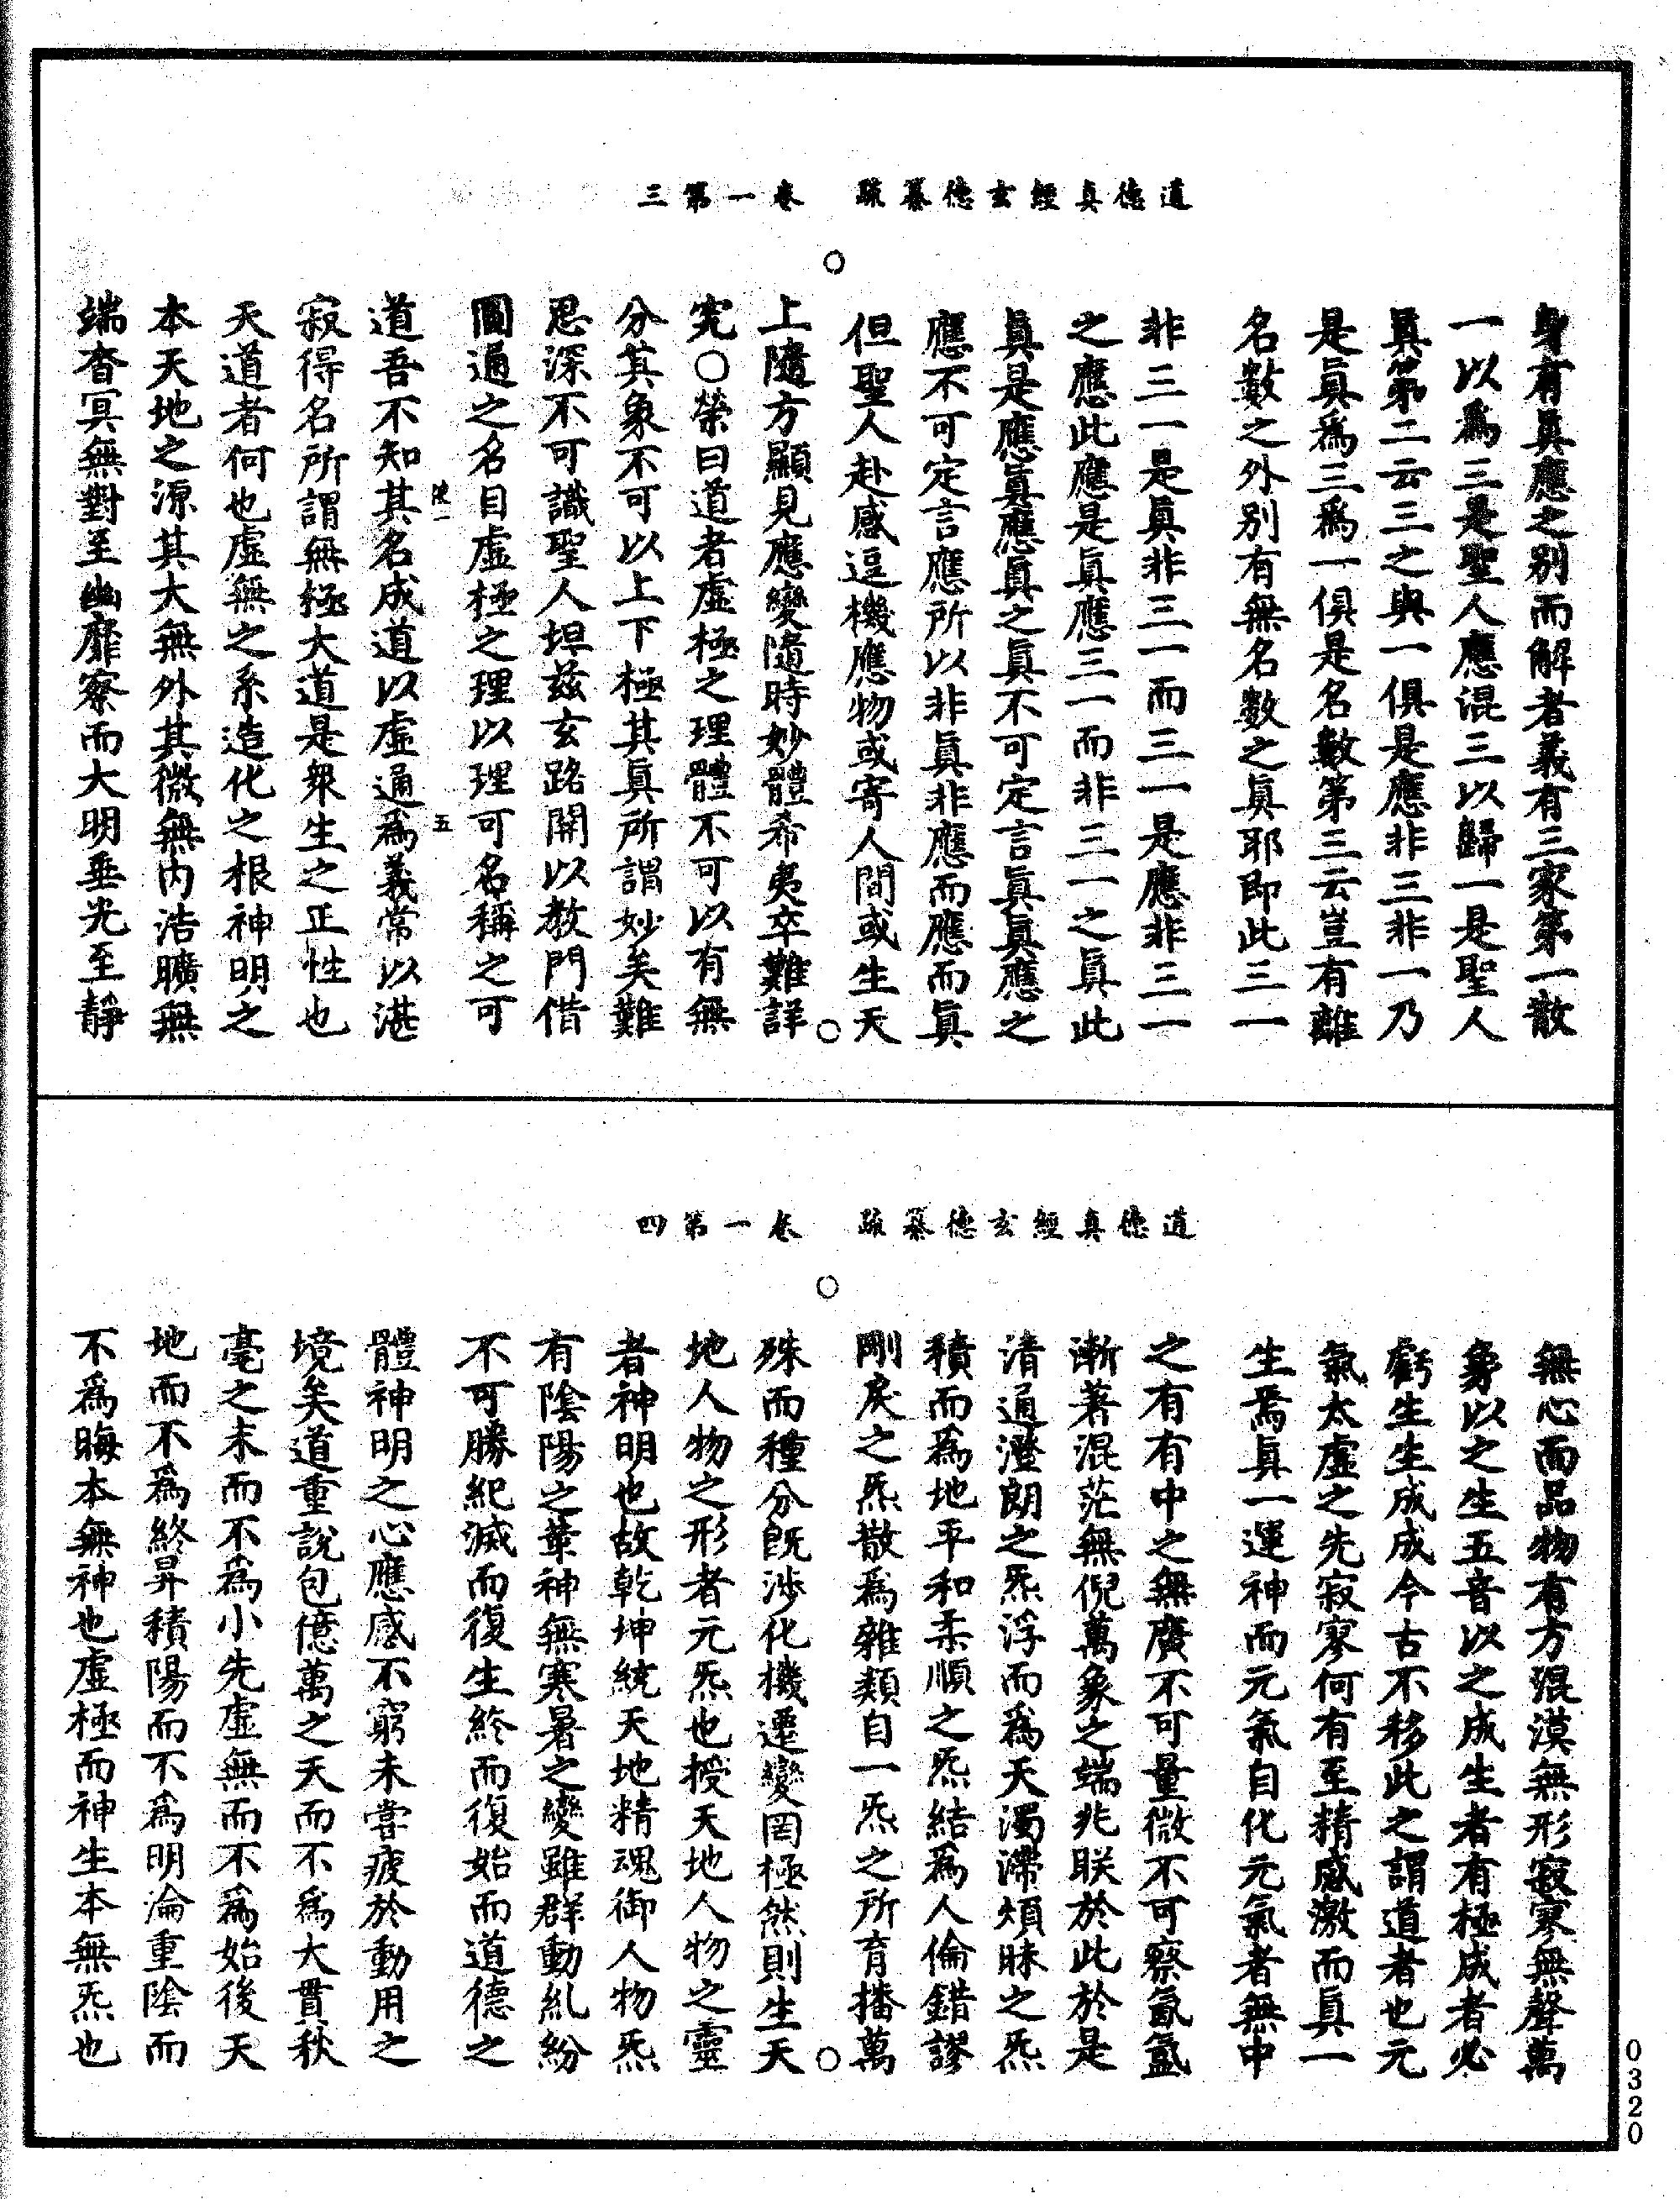 道德真經玄德纂疏　卷一第三
身有眞應之别而解者義有三家第一散
一以爲三是聖人應混三以歸一是聖人
眞第二云三之與一俱是應非三非一乃
是眞爲三爲一俱是名數第三云豈有離
名數之外別有無名數之眞耶即此三一
非三一是眞非三一而三一是應非三一
之應此應是眞應三一而非三一之眞此
眞是應眞應眞之眞不可定言眞眞應之
應不可定言應所以非眞非應而應而眞
但聖人赴感逗機應物或寄人間或生天
上隨方顯見應變隨時妙體希夷卒難詳
究○榮曰道者虛極之理體不可以有無
分其象不可以上下極其眞所謂妙矣難
思深不可識聖人坦茲玄路開以教門借
圓通之名目虛極之理以理可名稱之可
道吾不知其名成道以虛通爲義常以湛
寂得名所謂無極大道是衆生之正性也
天道者何也虛無之系造化之根神明之
本天地之源其大無外其微無内浩曠無
端杳冥無對至幽靡察而大明垂光至靜
五
道德真經玄德纂疏　卷一第四
無心而品物有方混漠無形寂寥無聲萬
象以之生五音以之成生者有極成者必
虧生生成成今古不移此之謂道者也元
氣太虛之先寂寥何有至精感激而眞一
生焉眞一運神而元氣自化元氣者無中
之有有中之無廣不可量微不可察氤氳
漸著混茫無倪萬象之端兆眹於此於是
清通澄朗之炁浮而爲天濁滯煩昧之炁
積而爲地平和柔順之炁結爲人倫錯謬
剛戾之炁散爲雜類自一炁之所育播萬
殊而種分旣涉化機遷變罔極然則生天
地人物之形者元炁也授天地人物之靈
者神明也故乾坤統天地精魂御人物炁
有陰陽之革神無寒暑之變雖群動糺紛
不可勝紀滅而復生終而復始而道德之
體神明之心應感不窮未嘗疲於動用之
境矣道重説包億萬之天而不爲大貫秋
毫之末而不爲小先虛無而不爲始後天
地而不爲終昇積陽而不爲明淪重陰而
不爲晦本無神也虛極而神生本無炁也
0320